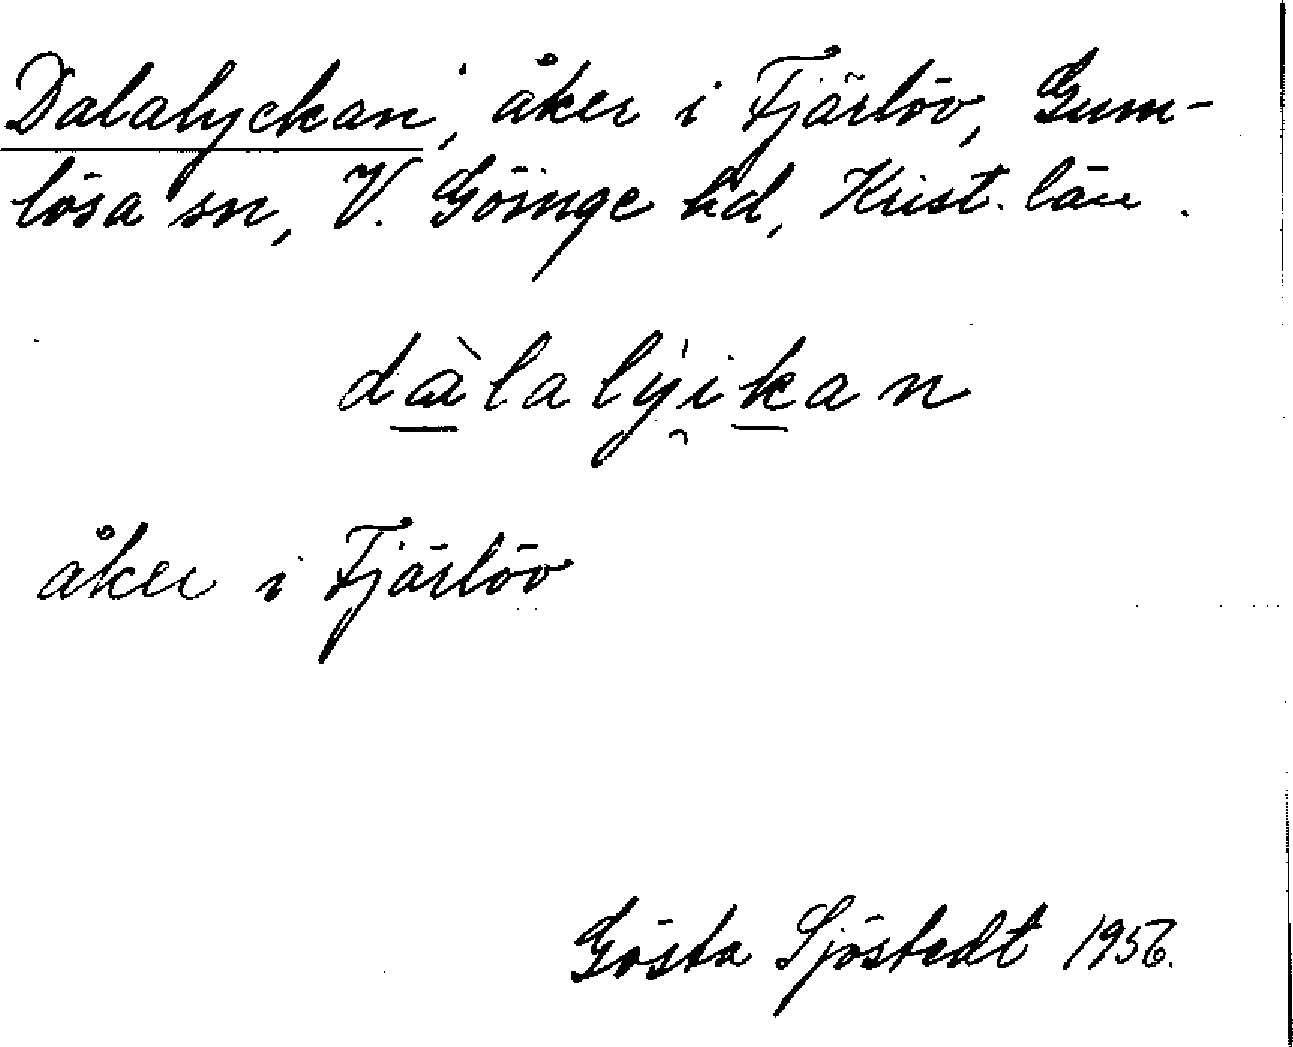 Dalalyckan, åker i Fjärlöv, Gum-
lösa sn, V. Göinge hd, Krist. län.
dàlalýi̯kan
åker i Fjärlöv
Gösta Sjöstedt 1956.